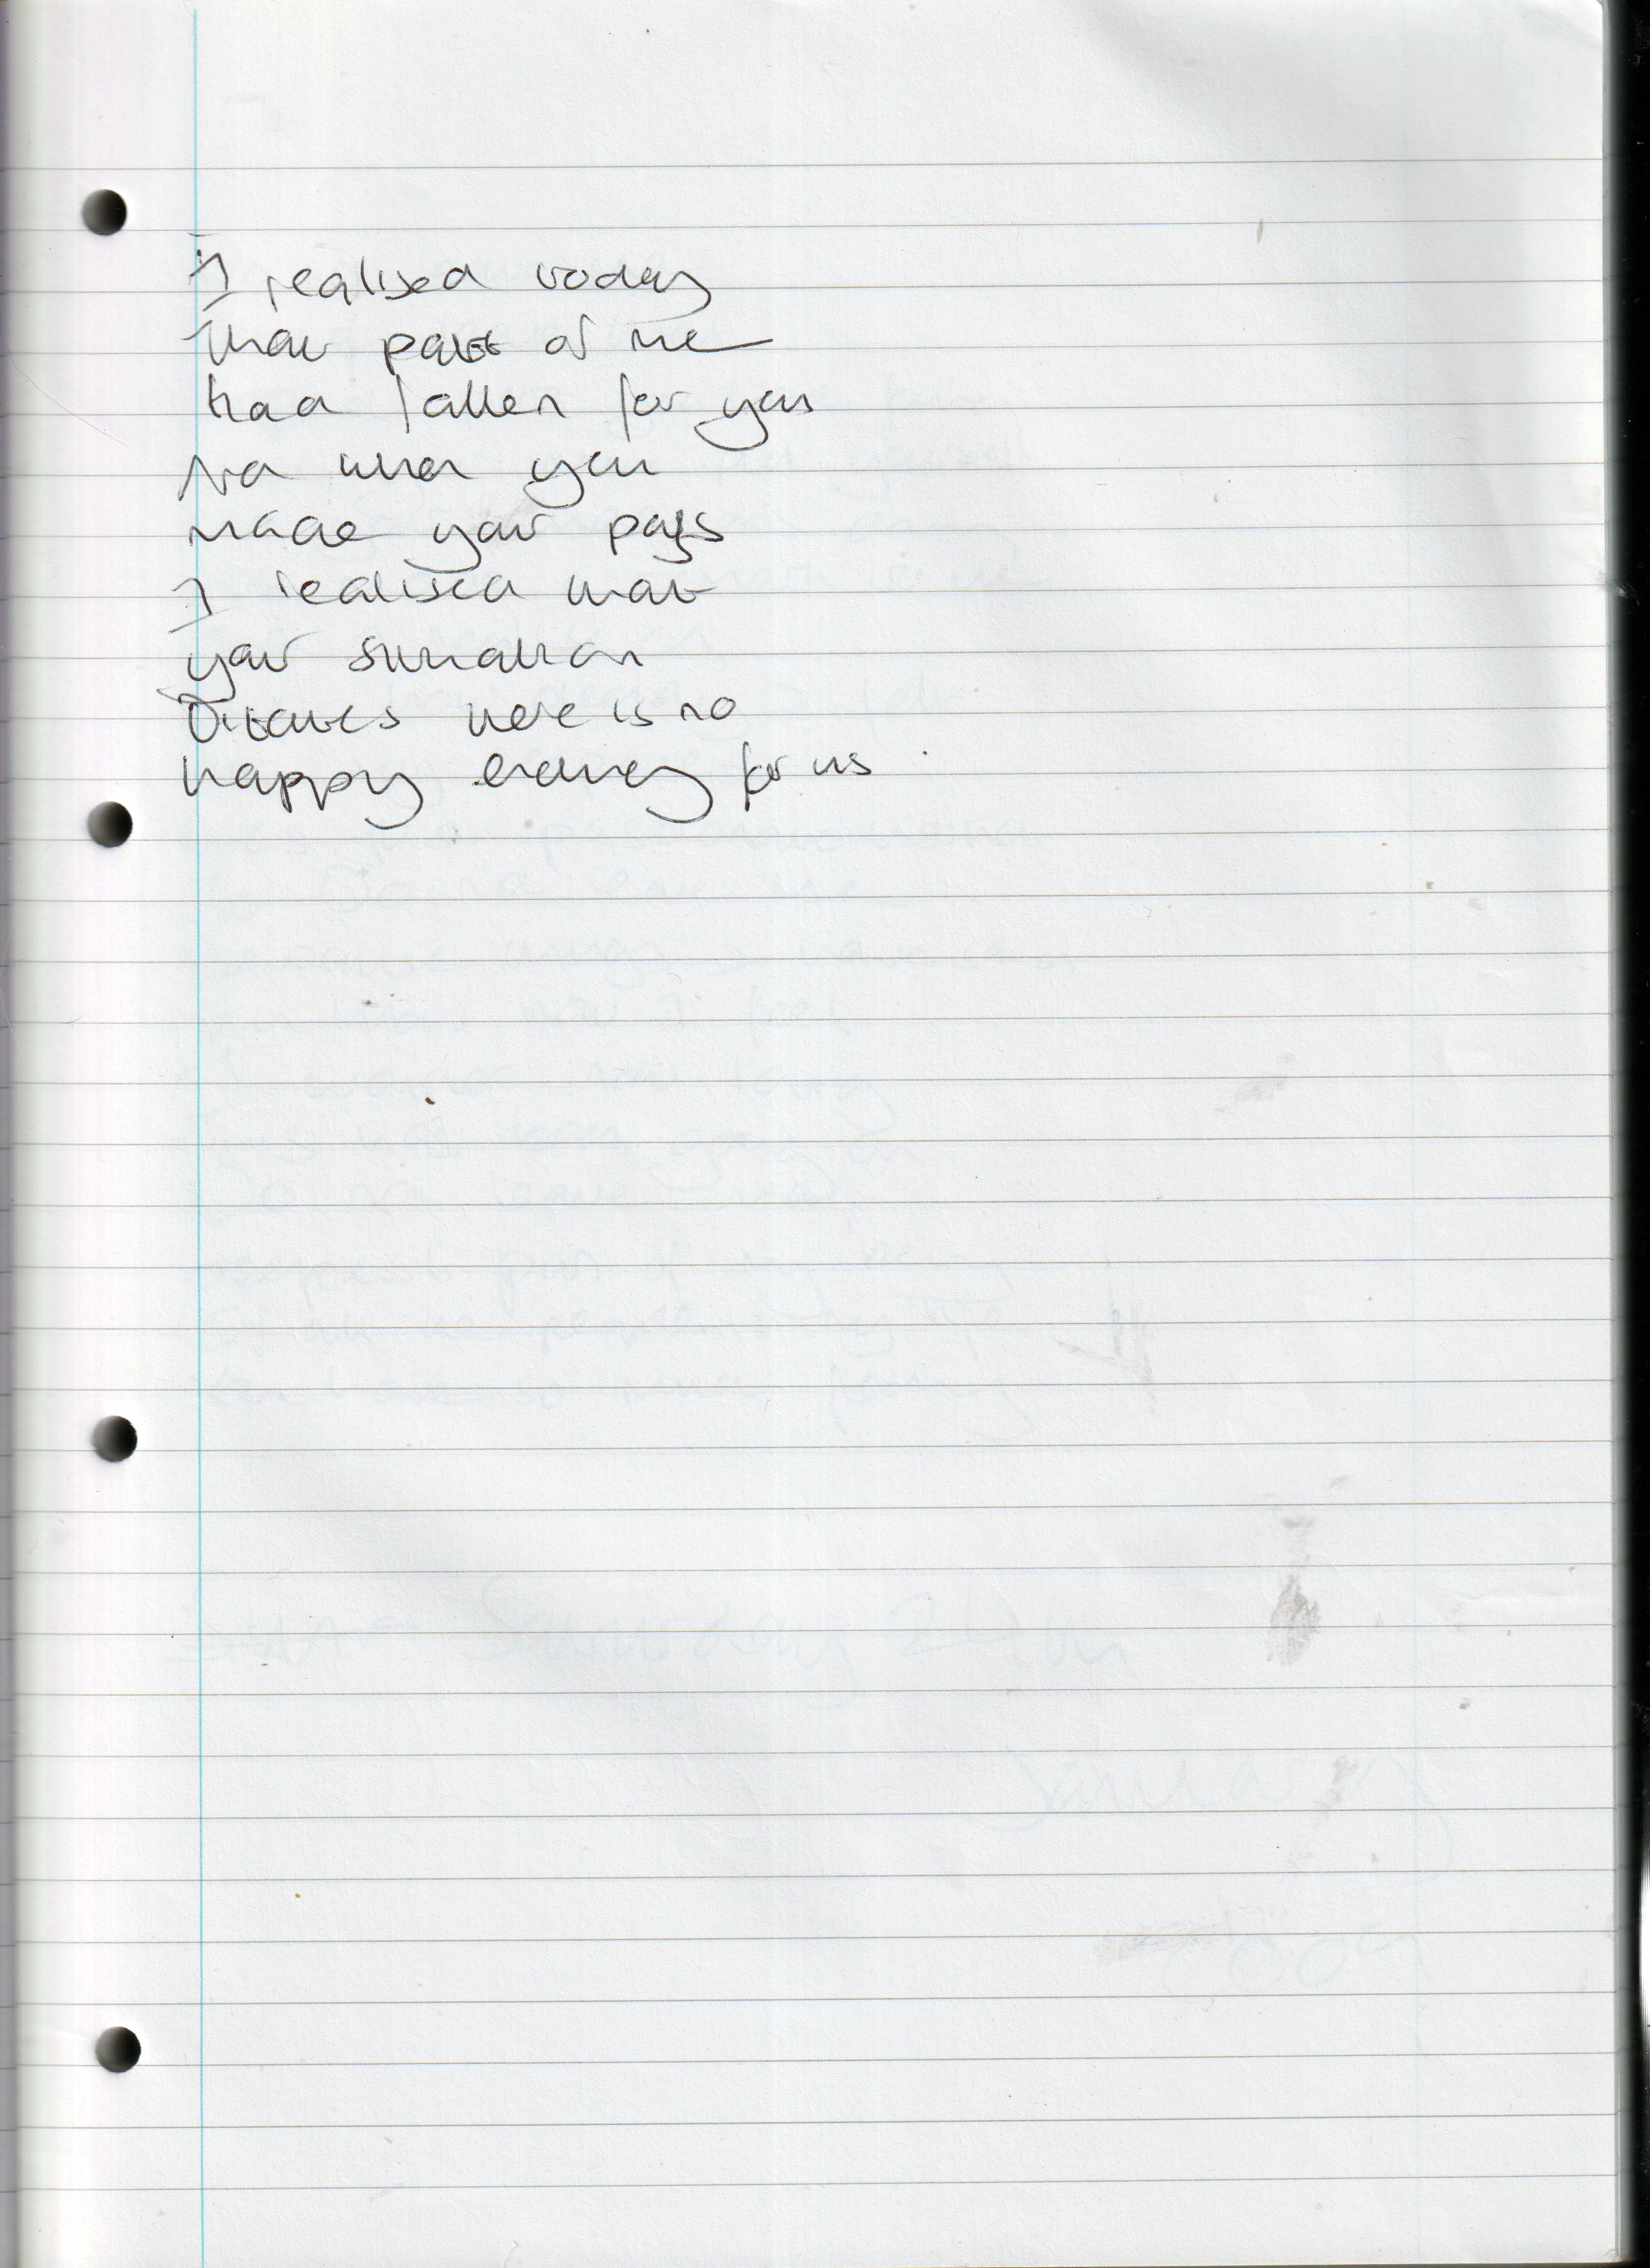 I realised today
that part of me
had fallen for you
when you
made your
I realised that
your situation
Dictates there is no
happy ending for us